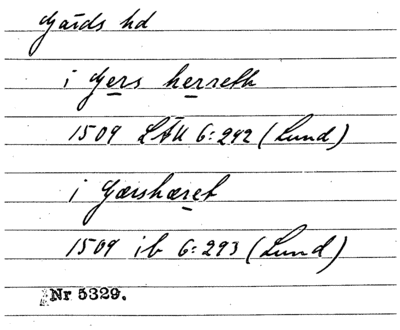 Gärds hd
i Gers herreth
1509 LÄU 6:242 (Lund)
i Gærshæret
1509 ib 6:293 (Lund)
Nr 5329.